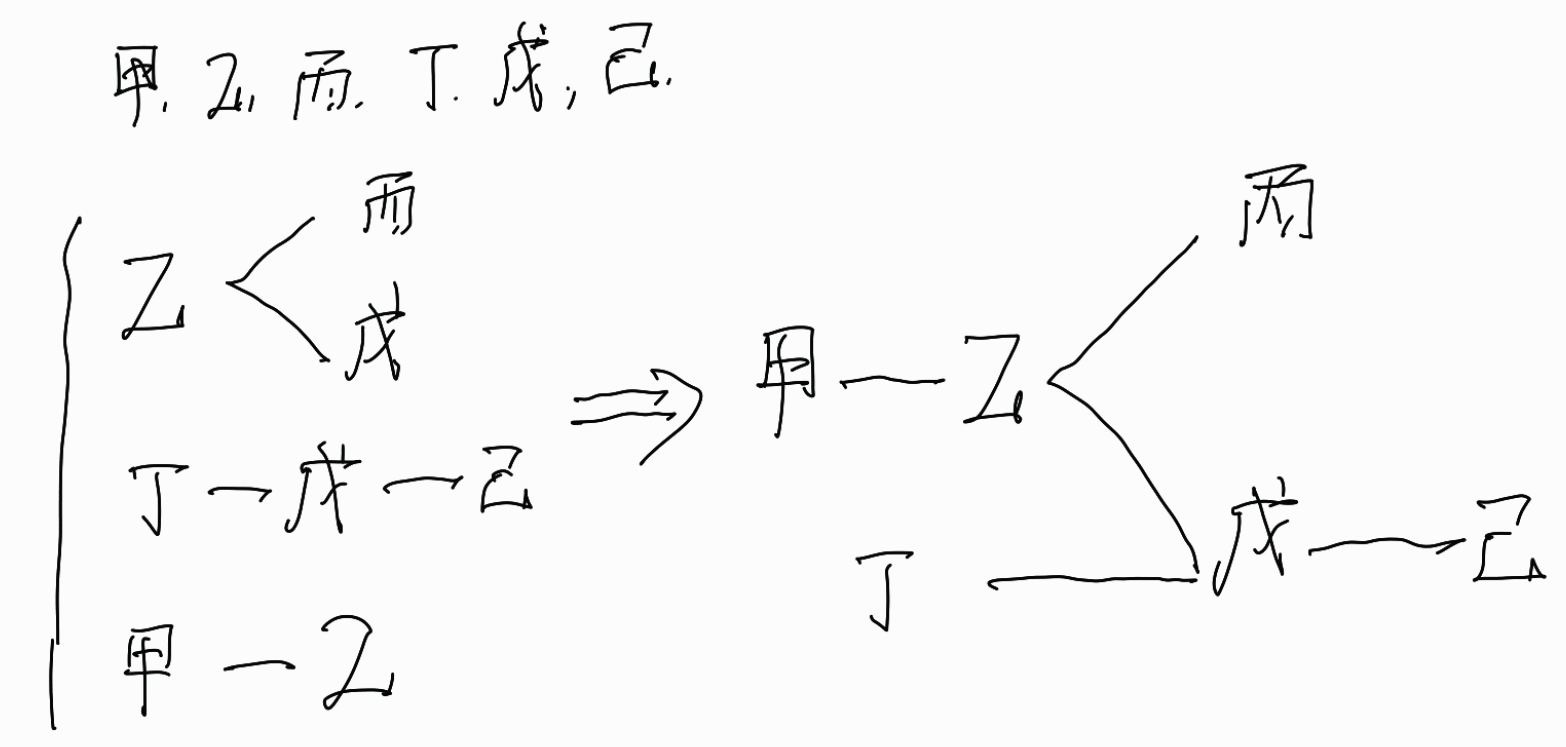 甲, 乙, 丙, 丁, 戊, 己.
乙 丙
戊
丁 — 戊 — 己
甲 — 乙
⇒
甲 — 乙 丙
丁 — 戊 — 己